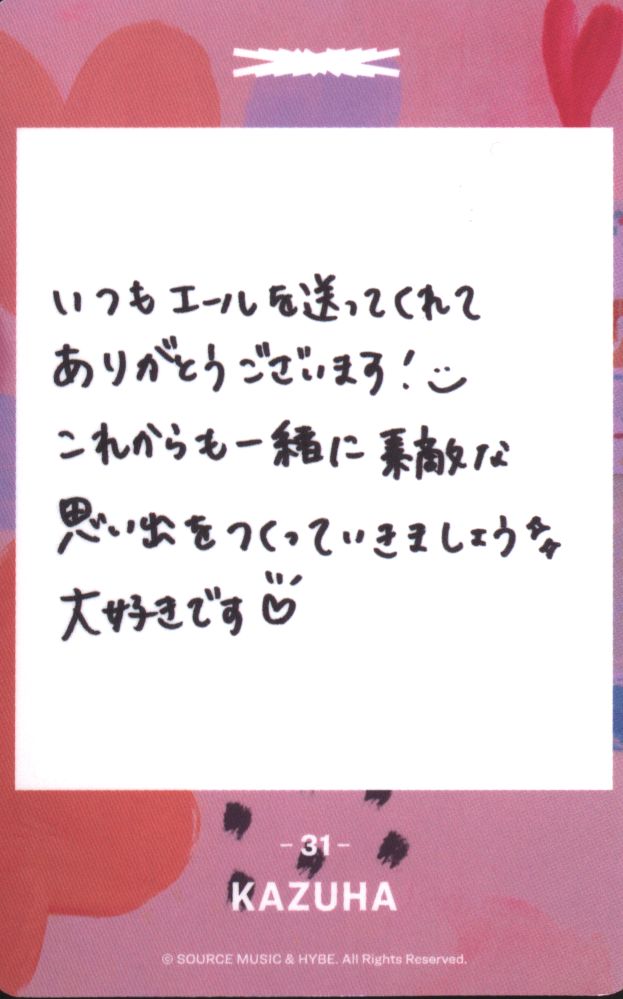 いつもエールを送ってくれて
ありがとうございます!
これからも一緒に素敵な
思い出をつくっていきましょう
大好きです♡
-31-
KAZUHA
© SOURCE MUSIC & HYBE. All Rights Reserved.